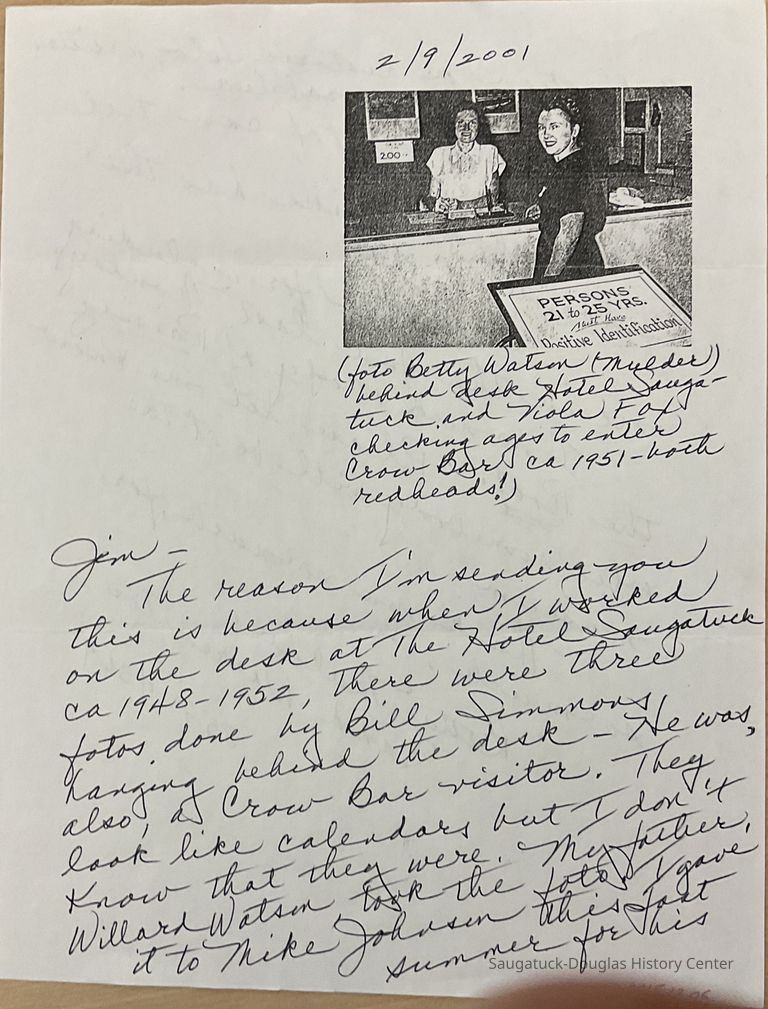 2/9/2001
2.00
PERSONS
21 to 25 YRS.
Must Have
Positive Identification
(foto Betty Watson (Mulder)
behind desk Hotel Sauga-
tuck and Viola Fox
checking ages to enter
Crow Bar ca 1951-both
redheads!)
Jim -
The reason I'm sending you
this is because when I worked
on the desk at The Hotel Saugatuck
ca 1948-1952, there were three
fotos done by Bill Simmons,
hanging behind the desk - He was,
also, a Crow Bar visitor. They
look like calendars but I don't
know that they were. My father,
Willard Watson took the foto. I gave
it to Mike Johnson this past
summer for his
Saugatuck-Douglas History Center